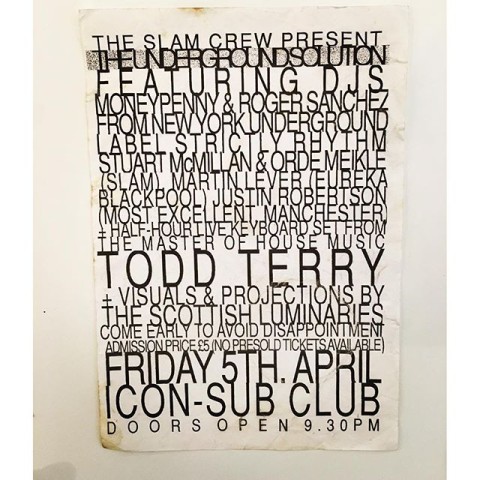 THE SLAM CREW PRESENT
THEUNDERGROUNDSOLUTION
FEATURING DJS
MONEYPENNY & ROGER SANCHEZ
FROM NEW YORK UNDERGROUND
LABEL STRICTLY RHYTHM
STUART McMILLAN & ORDE MEIKLE
(SLAM), MARTIN LEVER (EUREKA
BLACKPOOL) JUSTIN ROBERTSON
(MOST EXCELLENT, MANCHESTER)
+ HALF-HOUR LIVE KEYBOARD SET FROM
THE MASTER OF HOUSE MUSIC
TODD TERRY
+ VISUALS & PROJECTIONS BY
THE SCOTTISH LUMINARIES
COME EARLY TO AVOID DISAPPOINTMENT
ADMISSION PRICE £5 (NO PRESOLD TICKETS AVAILABLE)
FRIDAY 5TH. APRIL
ICON-SUB CLUB
DOORS OPEN 9.30PM